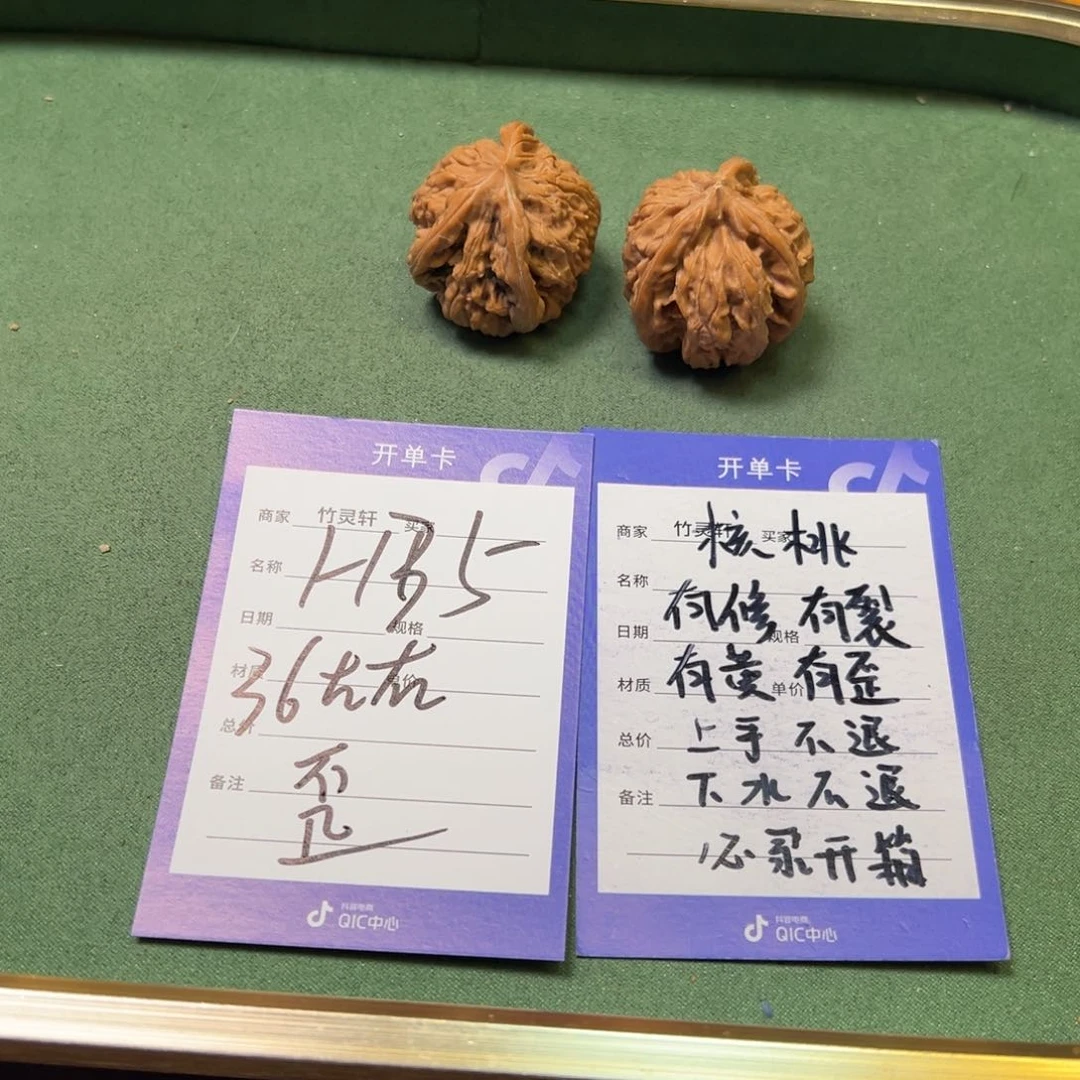 开单卡
商家 竹灵轩 买家
HB5
名称
日期 规格
材质 单价
36左右
总价
歪
备注
抖音电商
QIC中心
开单卡
商家 竹灵轩 买家
核桃
名称
有修 有裂
日期 规格
材质 有黄 单价 有歪
总价 上手不退
备注 下水不退
必录开箱
抖音电商
QIC中心